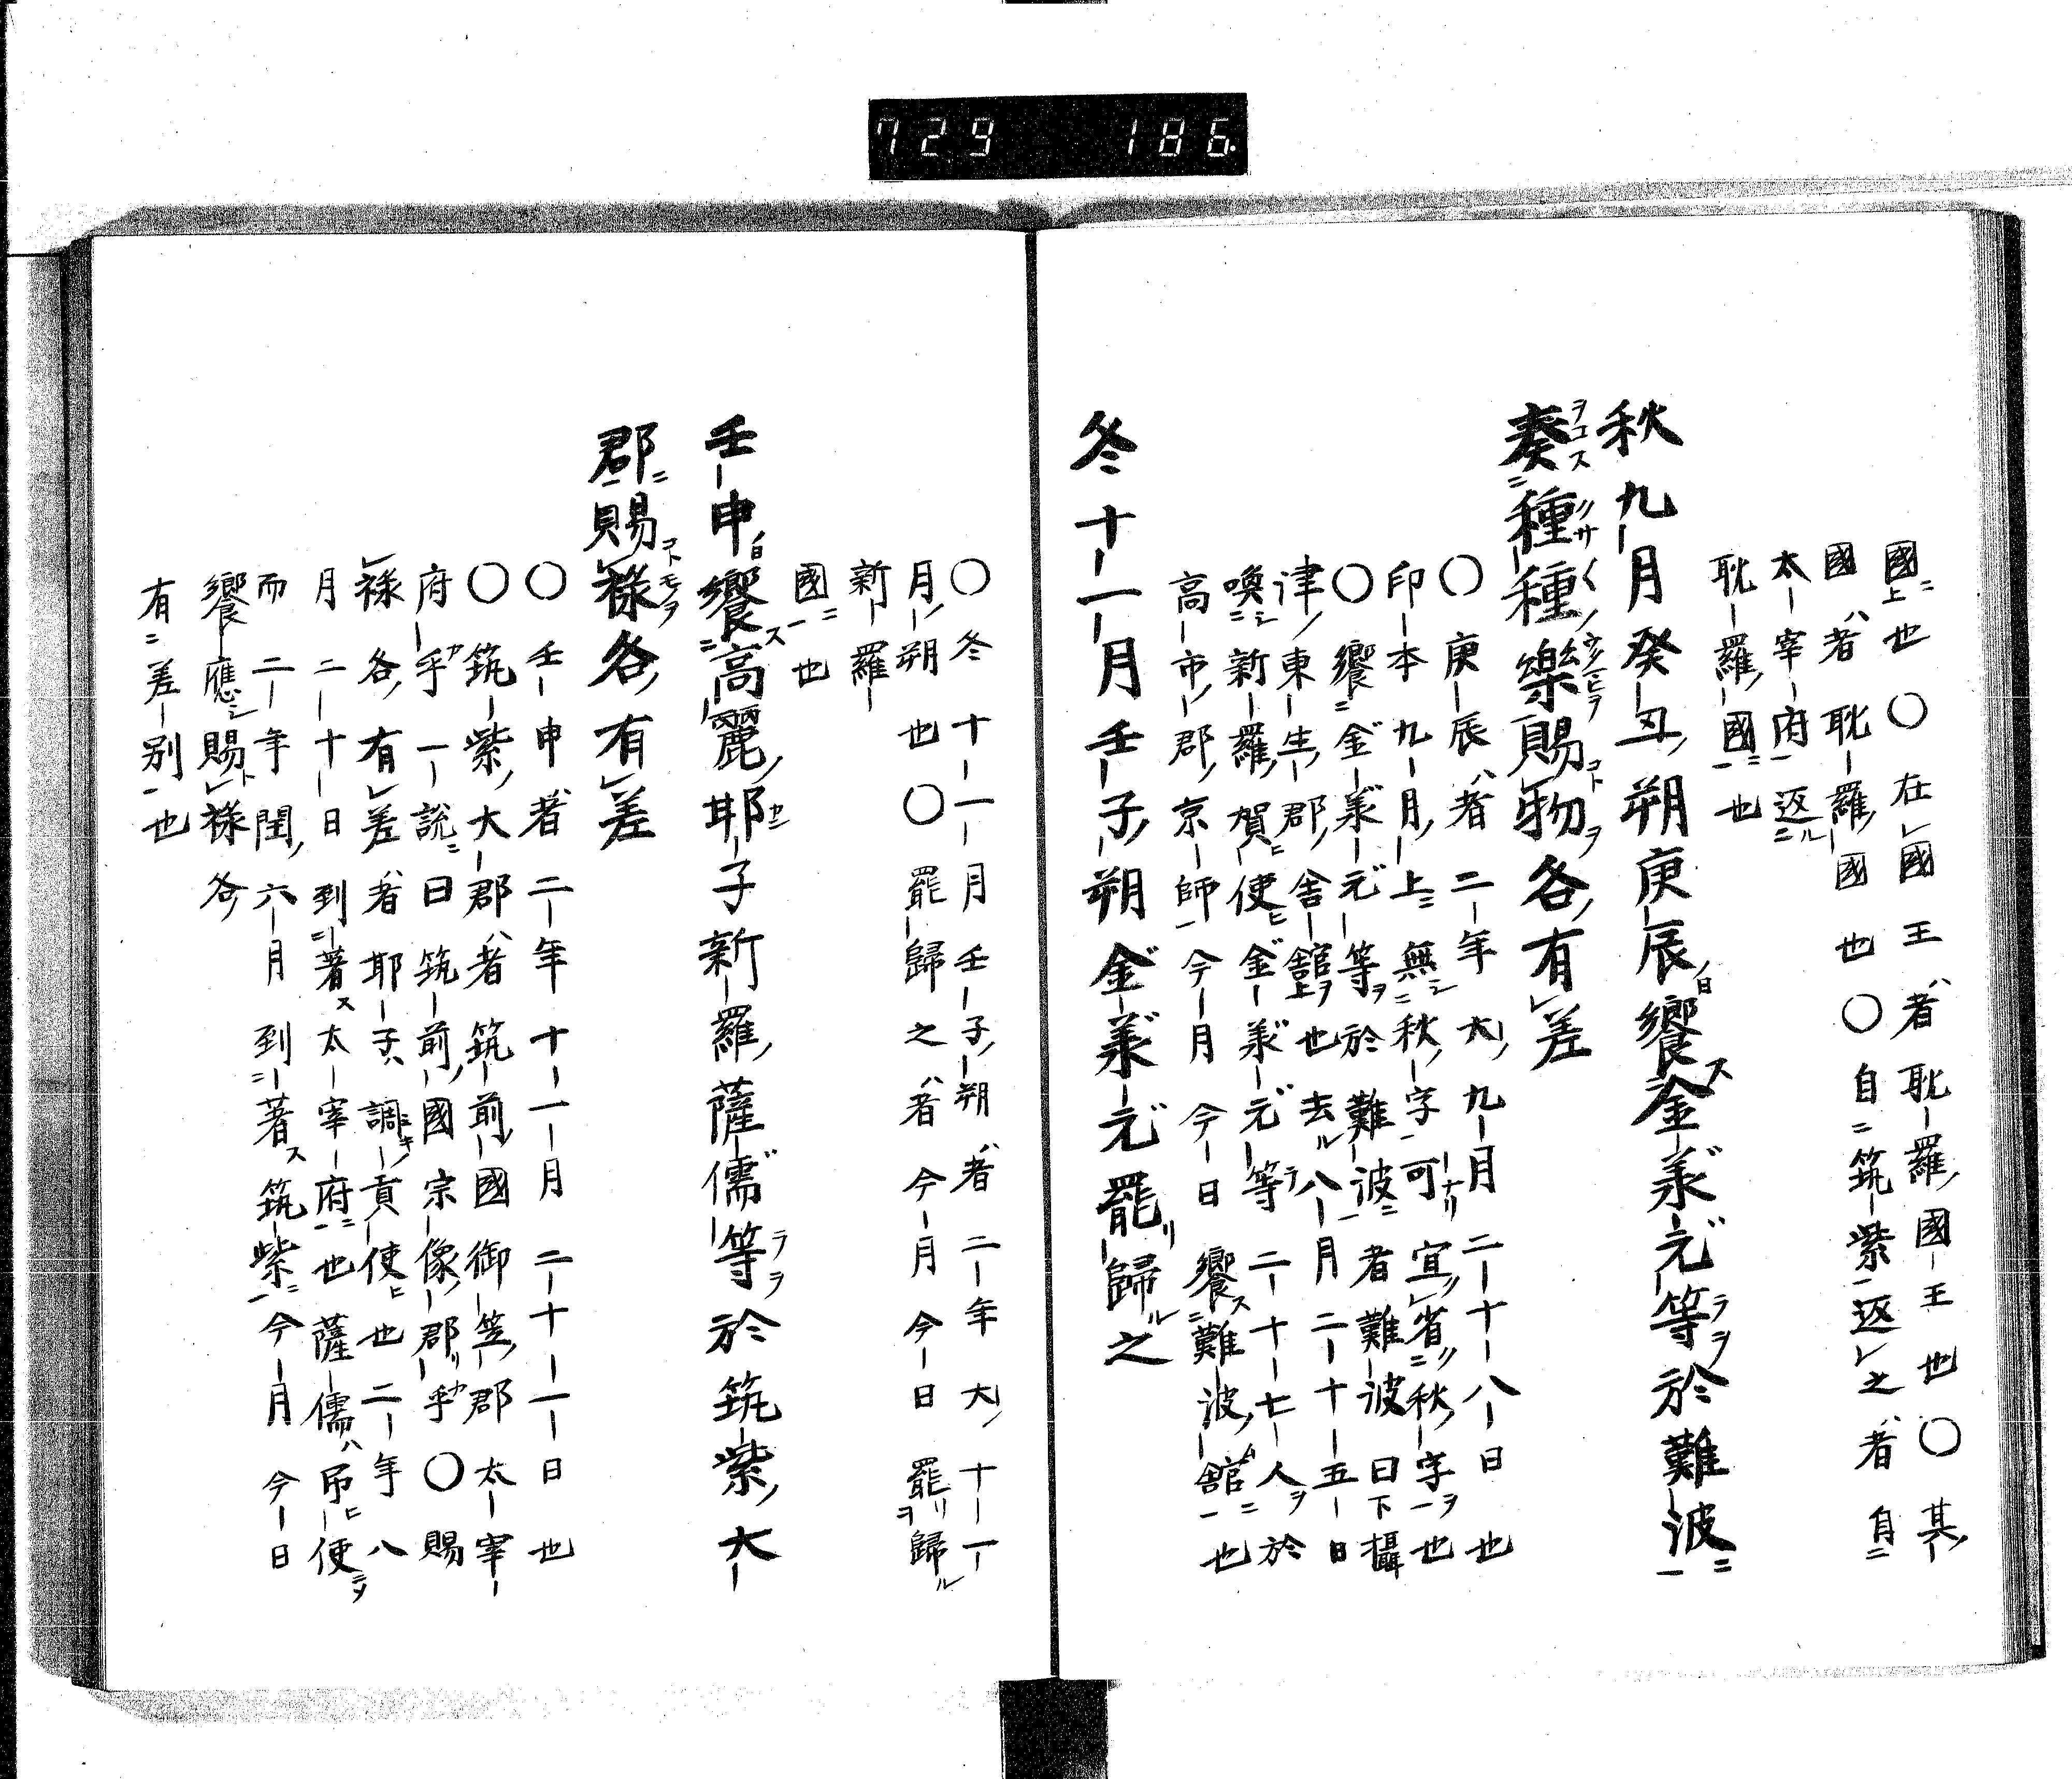 729 186
國上也〇在國王者耽羅國王也〇其
國者耽羅國也〇自筑紫返之者自
太宰府返
耽羅國也
秋九月癸丑朔庚辰饗金承元等於難波
奏種種樂賜物各有差
〇庚辰者二年大九月二十八日也
印本九月上無秋字可宜省秋字也
〇饗金承元等於難波者難波曰下攝
津東生郡舎館也去八月二十五日
喚新羅賀使金承元等二十七人於
高市郡京師今月今日饗難波館也
冬十一月壬子朔金承元罷歸之
〇冬十一月壬子朔者二年大十一
月朔也〇罷歸之者今月今日罷歸
新羅
國也
壬申饗高麗邯子新羅薩儒等於筑紫大
郡賜祿各有差
〇壬申者二年十一月二十一日也
〇筑紫大郡者筑前國御笠郡太宰
府乎一説曰筑前國宗像郡乎〇賜
祿各有差者邯子調貢使也二年八
月二十日到著太宰府也薩儒吊使
而二年閏六月到著筑紫今月今日
饗應賜祿各
有差別也